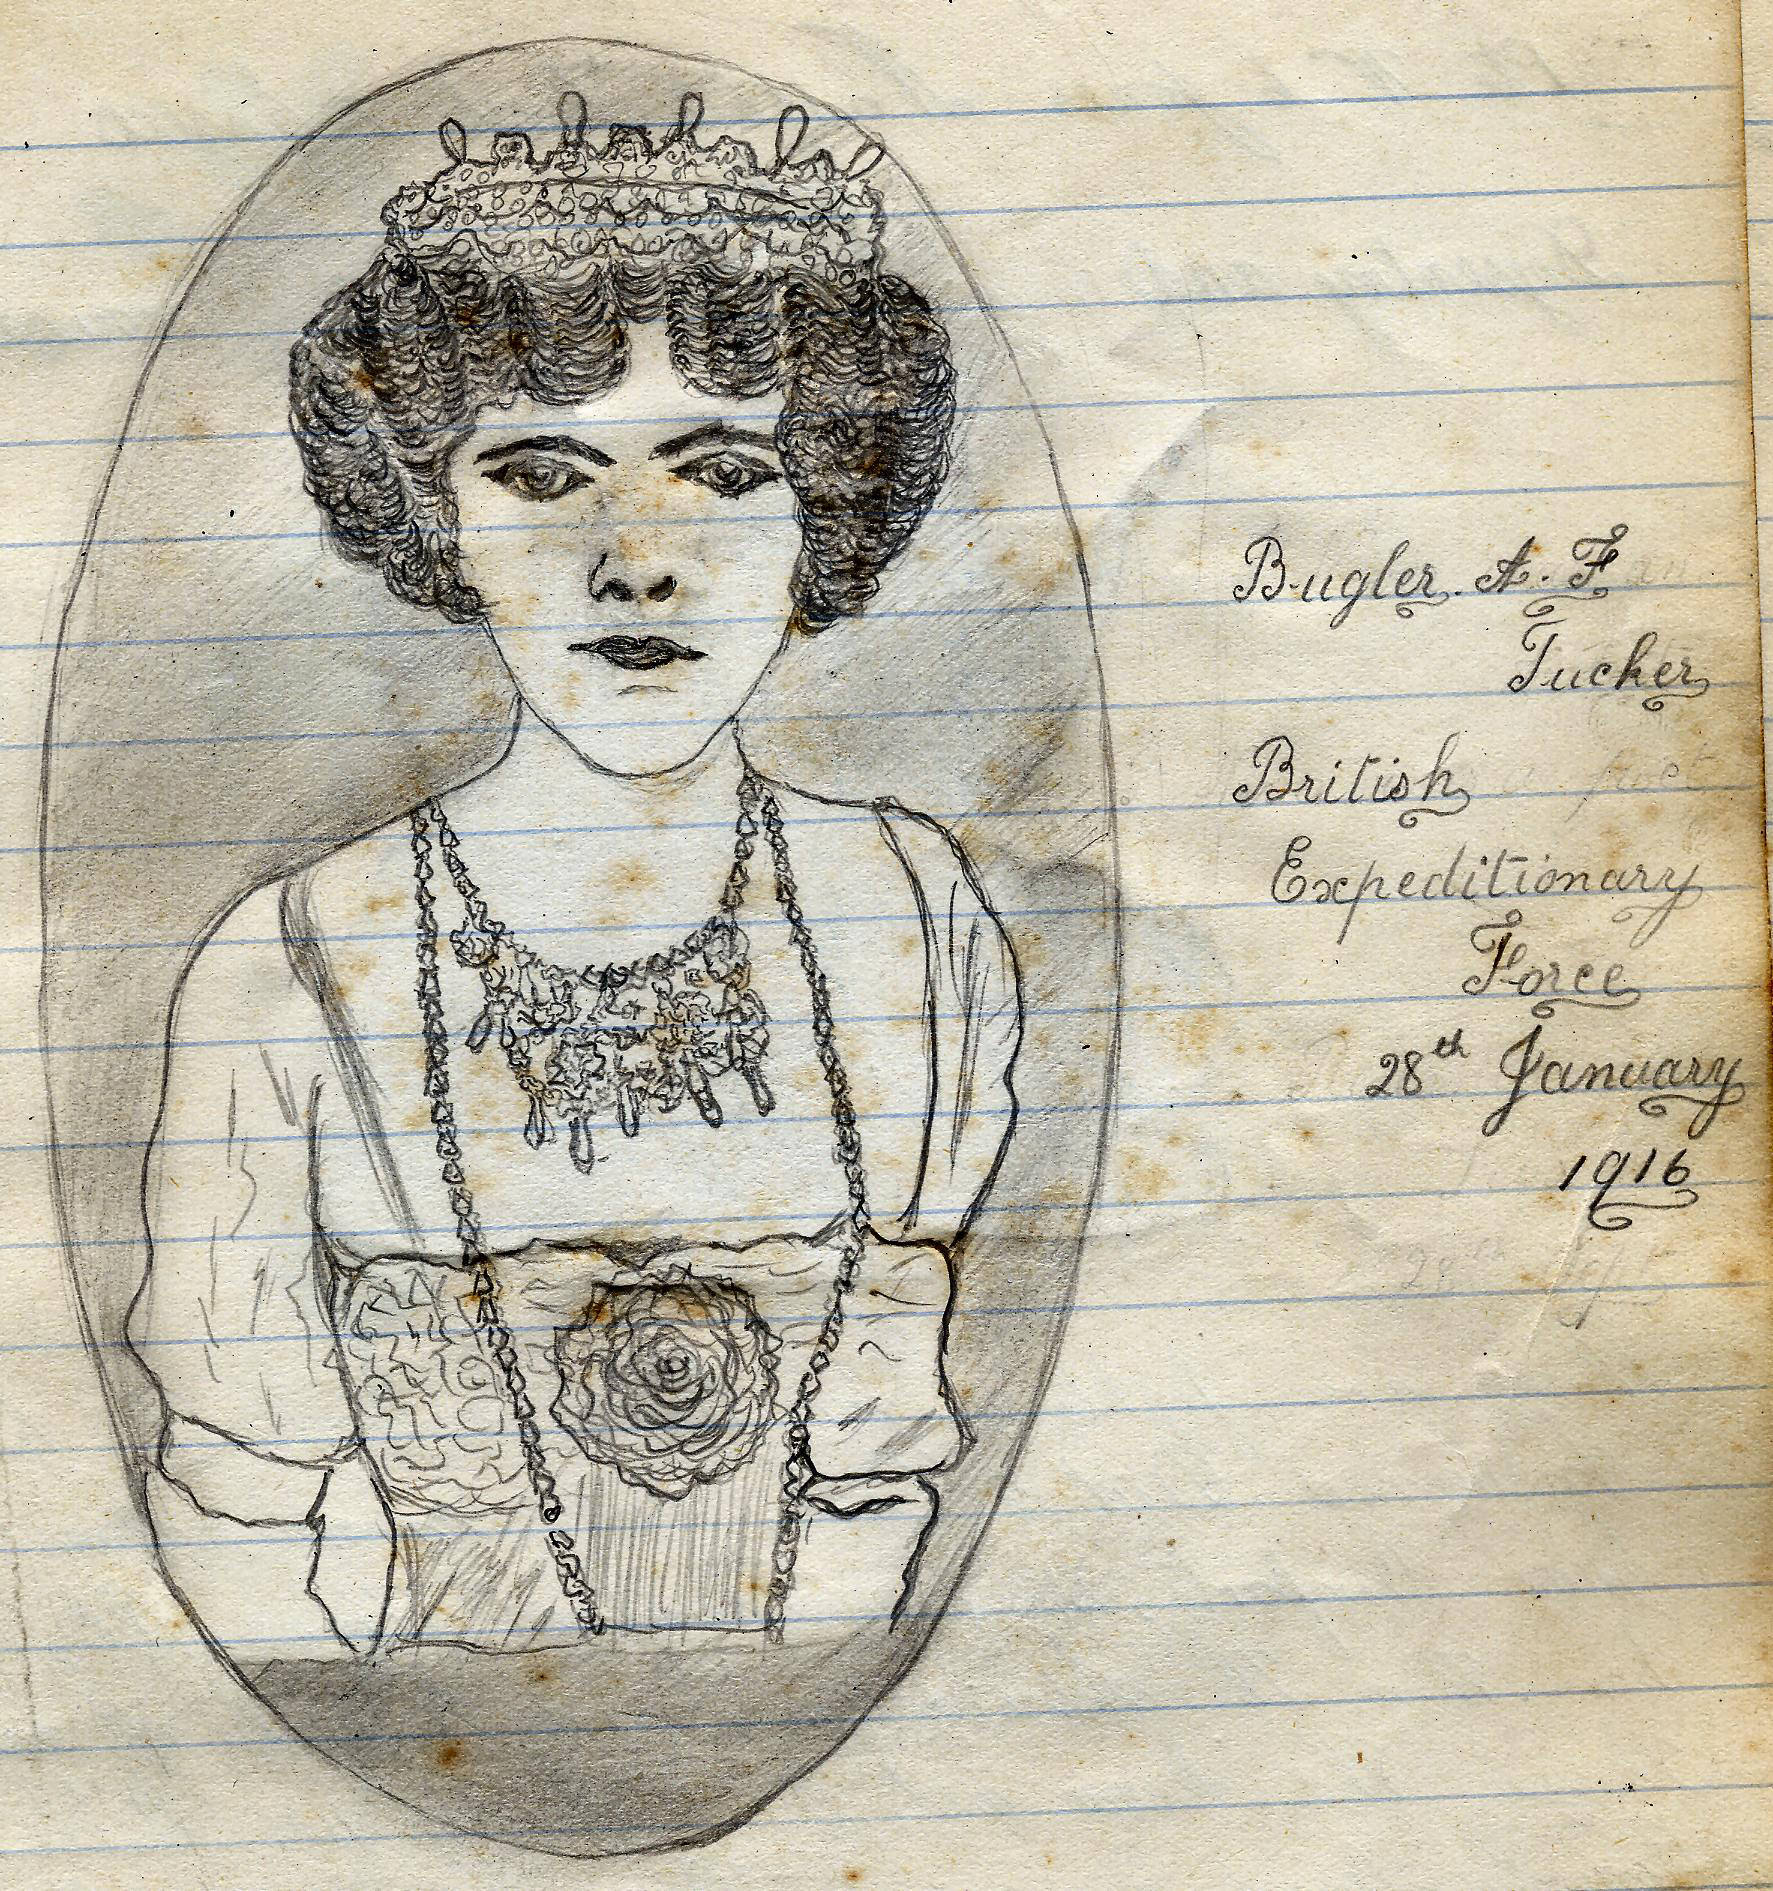 Bugler. A. F
Tucker
British
Expeditionary
Force
28th January
1916